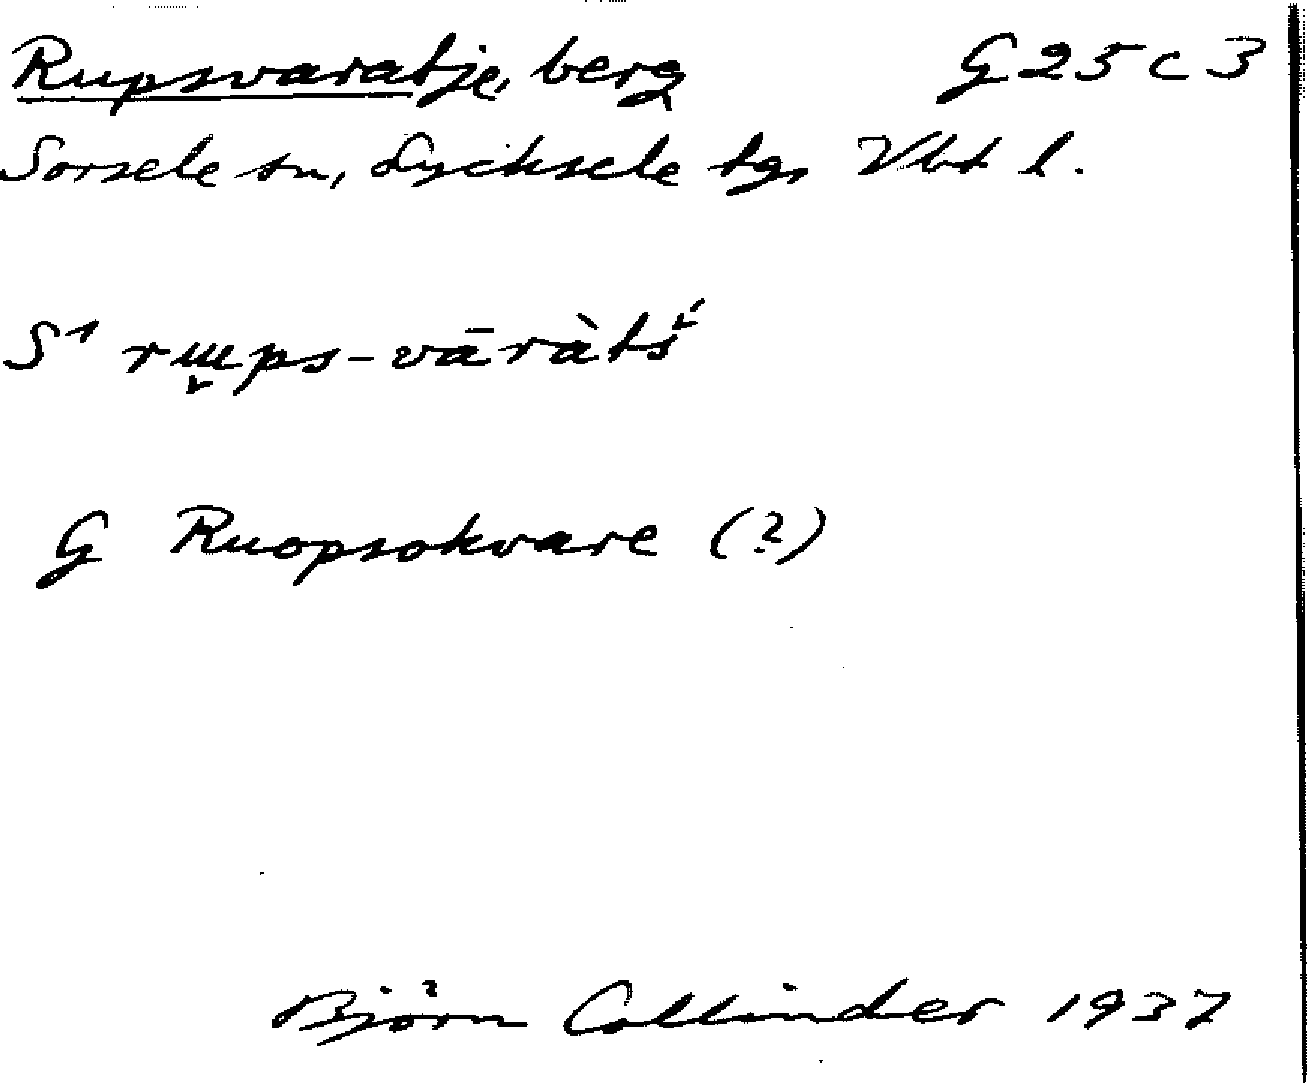 Rupsvaratje, berg G 25 c 3
Sorsele sn, Lycksele tg, Vbt l.
S1 rɯps-vāràtś
G Ruopsokvare (?)
Björn Collinder 1937